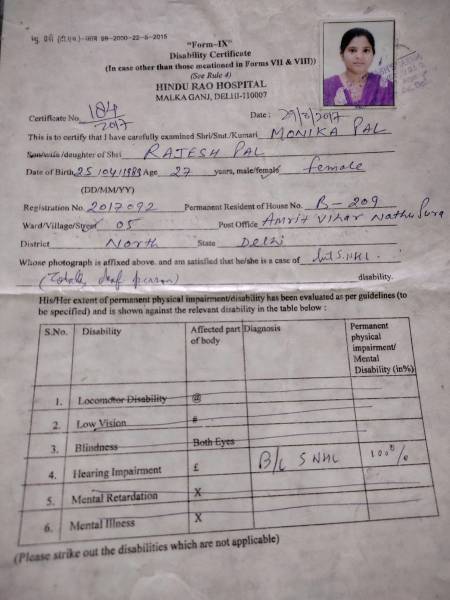 "Form-IX"
Disability Certificate
(In case other than those mentioned in Forms VII & VIII))
(See Rule 4)
HINDU RAO HOSPITAL
MALKA GANJ, DELHI-110007
Certificate No. 184/2017 Date: 29/8/2017
This is to certify that I have carefully examined Shri/Smt./Kumari MONIKA PAL
Son/wife/daughter of Shri RAJESH PAL
Date of Birth 25/04/1989 Age 27 years, male/female female
(DD/MM/YY)
Registration No. 2017092 Permanent Resident of House No. B-209
Ward/Village/Street 05 Post Office Amrit Vihar Nathu Pura
District North State Delhi
Whose photograph is affixed above, and am satisfied that he/she is a case of SNHL
(Totally deaf person) disability.
His/Her extent of permanent physical impairment/disability has been evaluated as per guidelines (to
be specified) and is shown against the relevant disability in the table below :
S.No. Disability Affected part of body Diagnosis Permanent physical impairment/ Mental Disability (in%)
1. Locomotor Disability @
2. Low Vision #
3. Blindness Both Eyes
4. Hearing Impairment £ B/L SNHL 100%
5. Mental Retardation X
6. Mental Illness X
(Please strike out the disabilities which are not applicable)